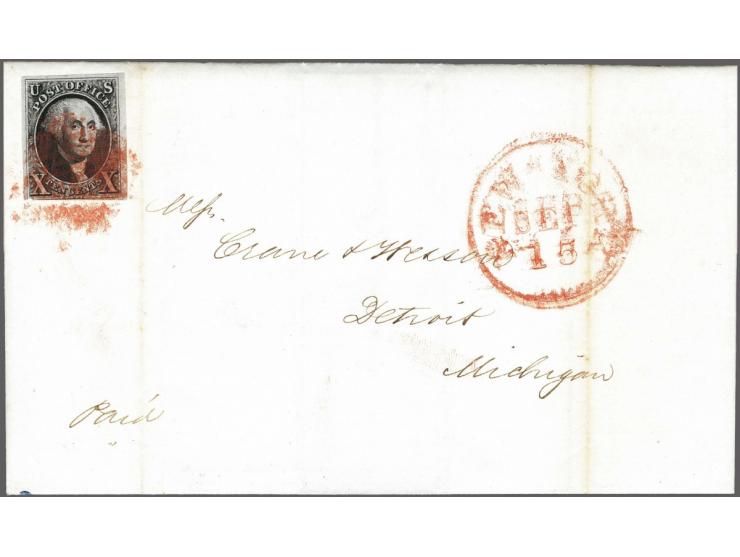 U S
POST OFFICE
X TEN CENTS X
SEP
15
Mess.
Crane & Wesson
Detroit
Michigan
Paid